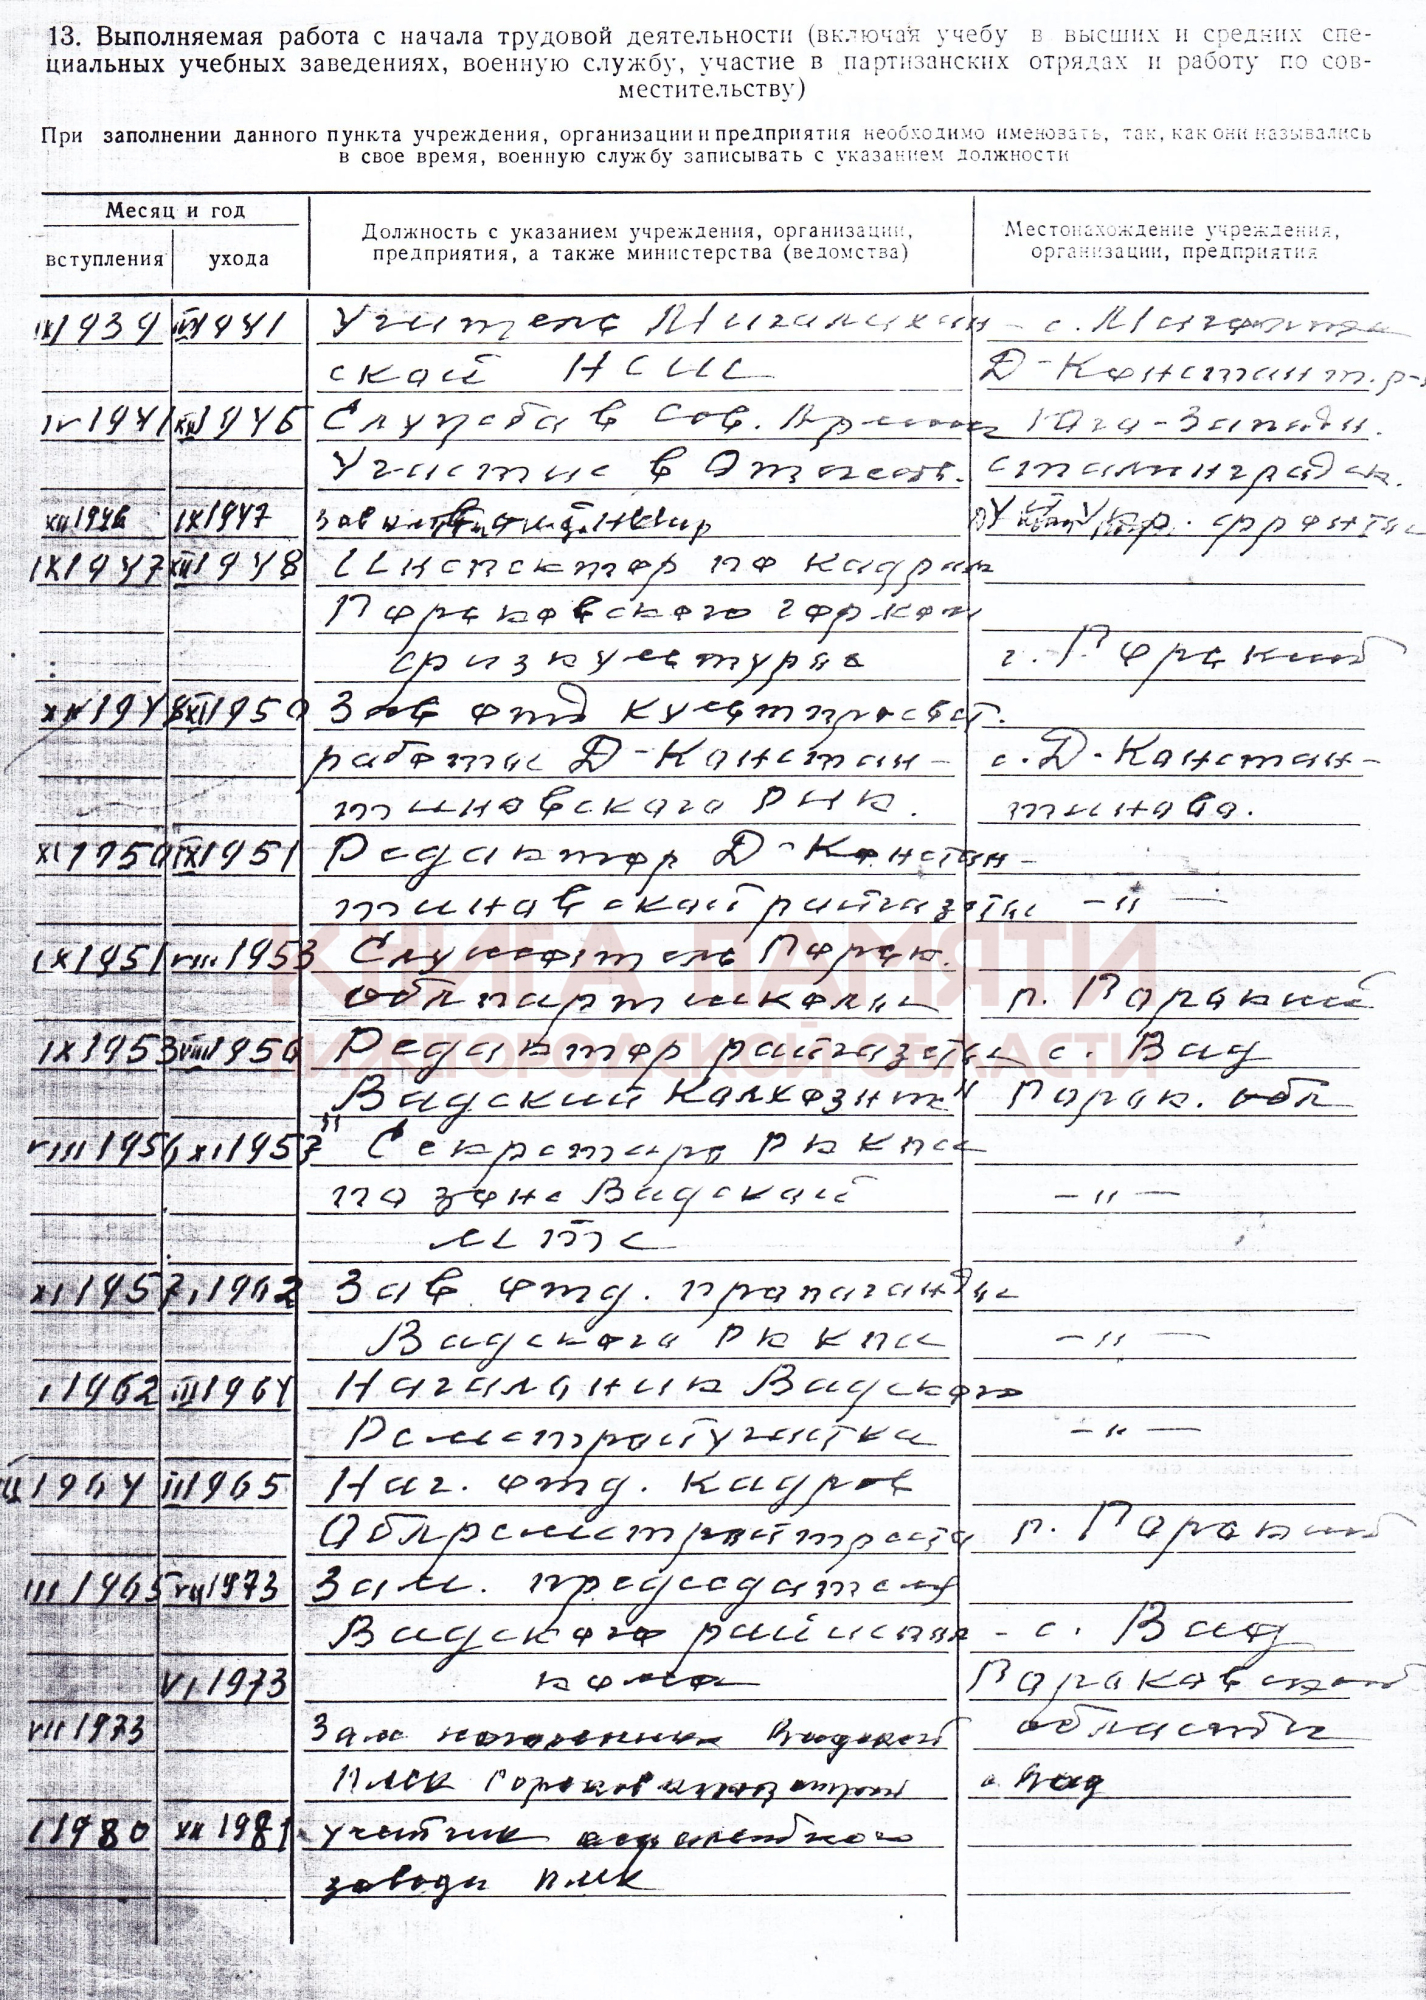 13. Выполняемая работа с начала трудовой деятельности (включая учебу в высших и средних спе-
циальных учебных заведениях, военную службу, участие в партизанских отрядах и работу по сов-
местительству)
При заполнении данного пункта учреждения, организации и предприятия необходимо именовать, так, как они назывались
в свое время, военную службу записывать с указанием должности
Месяц и год
вступления
ухода
Должность с указанием учреждения, организации,
предприятия, а также министерства (ведомства)
Местонахождение учреждения,
организации, предприятия
IX 1939 1941 Учитель Мигалихин- с.
ской НСШ Д-Констант. р-
1941 1946 Служба в Сов. Армии Юго-Западн.
Участие в Отечеств. Сталинградск.
XII 1946 IX 1947 Укр. фронты
IX 1947 XII 1948 Инспектор по кадрам
Горьковского горком
физкультуры г. Горький
1948 XI 1950 Зав отд культпросвет.
работы Д-Констан- с. Д-Констан-
тиновского РИК. тиново.
XI 1950 IX 1951 Редактор Д-Констан-
тиновской райгазеты -"-
IX 1951 VIII 1953 Слушатель Горьк.
облпартшколы г. Горький
IX 1953 VIII 1956 Редактор райгазеты с. Вад
"Вадский Колхозник" Горьк. обл
VIII 1956 XI 1957 Секретарь РК КПСС
по зоне Вадской -"-
МТС
XI 1957 I 1962 Зав отд. пропаганды
Вадского РК КПСС -"-
I 1962 III 1964 Начальник Вадского
Ремстройучастка -"-
1964 III 1965 Нач. отд. кадров
Облремстройтреста г. Горький
III 1965 1973 Зам. председателя
Вадского райиспол- с. Вад
VI 1973 кома Горьковской
VII 1973 Зам начальника Вадской области
ПМК с Вад
I 1980 XII 1981 асфальтного
завода ПМК
КНИГА ПАМЯТИ
НИЖЕГОРОДСКОЙ ОБЛАСТИ